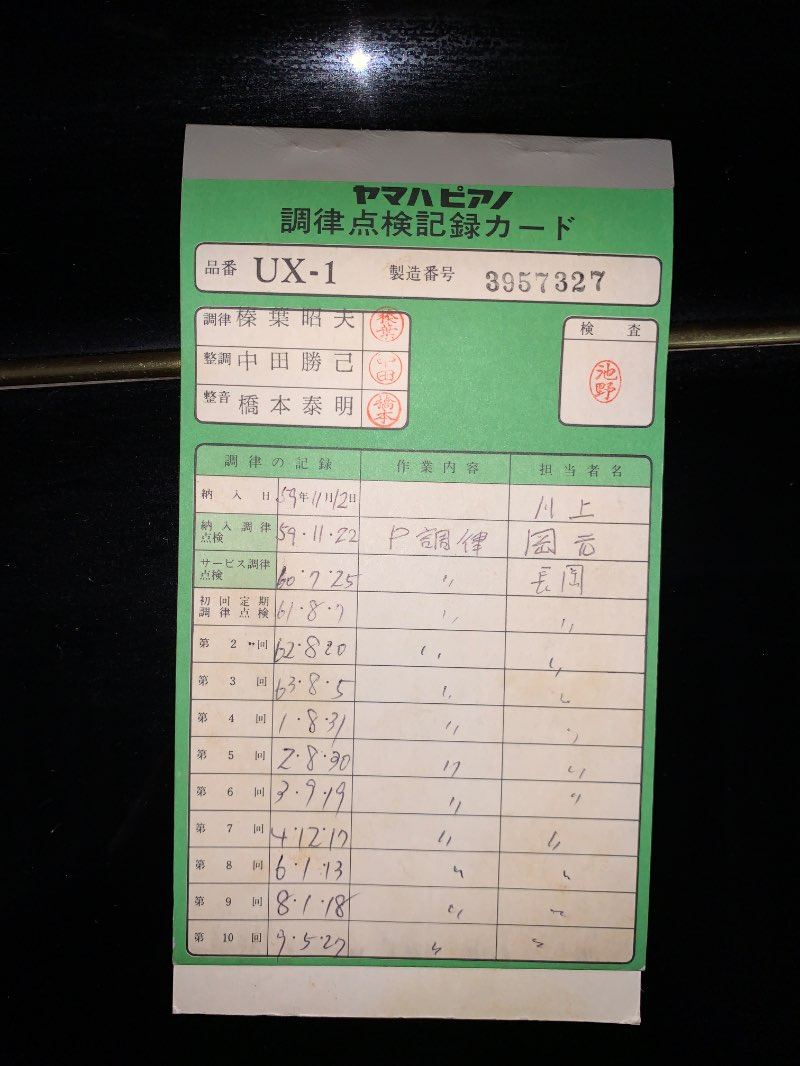 ヤマハピアノ
調律点検記録カード
品番 UX-1 製造番号 3957327
調律 榛葉昭夫 榛葉
整調 中田勝己 中田
整音 橋本泰明 橋本
検査
池野
調律の記録 作業内容 担当者名
納入日 59年11月12日 川上
納入調律点検 59・11・22 P調律 岡元
サービス調律点検 60・7・25 〃 長岡
初回定期調律点検 61・8・7 〃 〃
第2〃回 62・8・20 〃 〃
第3回 63・8・5 〃 〃
第4回 1・8・31 〃 〃
第5回 2・8・30 〃 〃
第6回 3・9・19 〃 〃
第7回 4・12・17 〃 〃
第8回 6・1・13 〃 〃
第9回 8・1・18 〃 〃
第10回 9・5・27 〃 〃